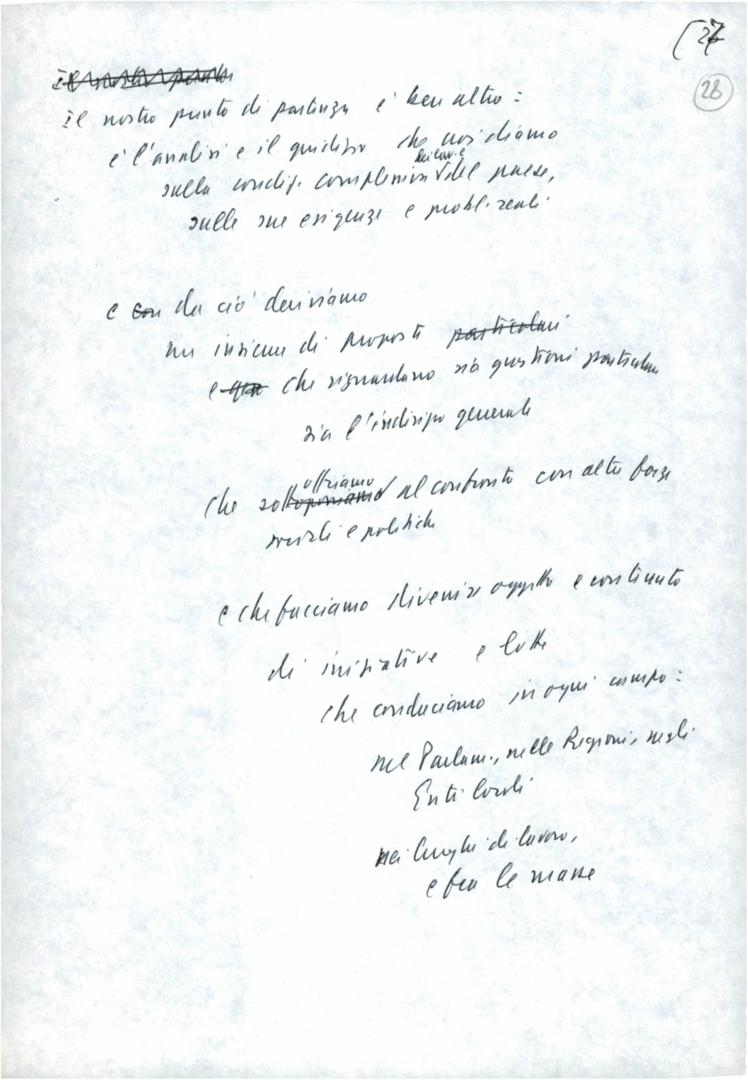 (27
28
il nostro punto
il nostro punto di partenza è ben altro:
è l'analisi e il giudizio che noi diamo
sulla condiz. complessiva del paese,
sulle sue esigenze e probl. reali
e con da ciò deriviamo
un insieme di proposte particolari
e che riguardano sia questioni particolari
sia l'indirizzo generale
offriamo
che sottoponiamo al confronto con altre forze
sociali e politiche
e che facciamo divenire oggetto e contenuto
di iniziative e lotte
che conduciamo in ogni campo:
nel Parlam., nelle Regioni, negli
Enti locali
nei luoghi di lavoro,
e fra le masse